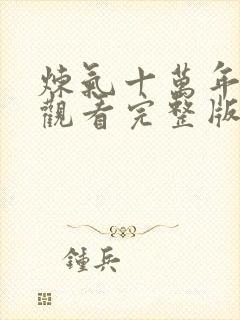 煉氣十萬年
觀看完整版
鍾兵